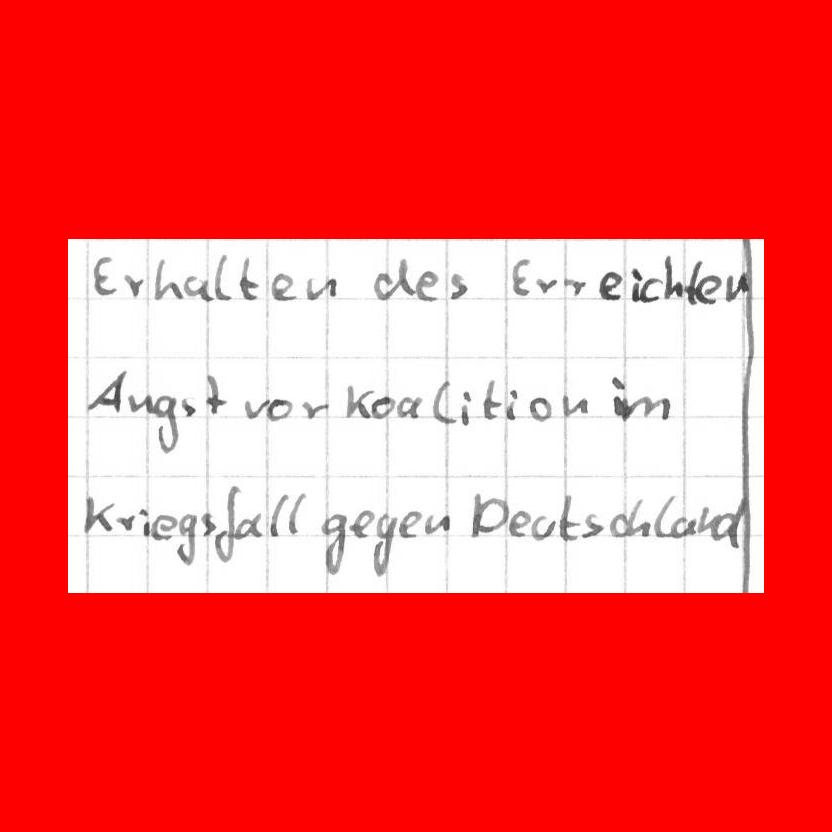 Erhalten des Erreichten
Angst vor Koalition im
Kriegsfall gegen Deutschland